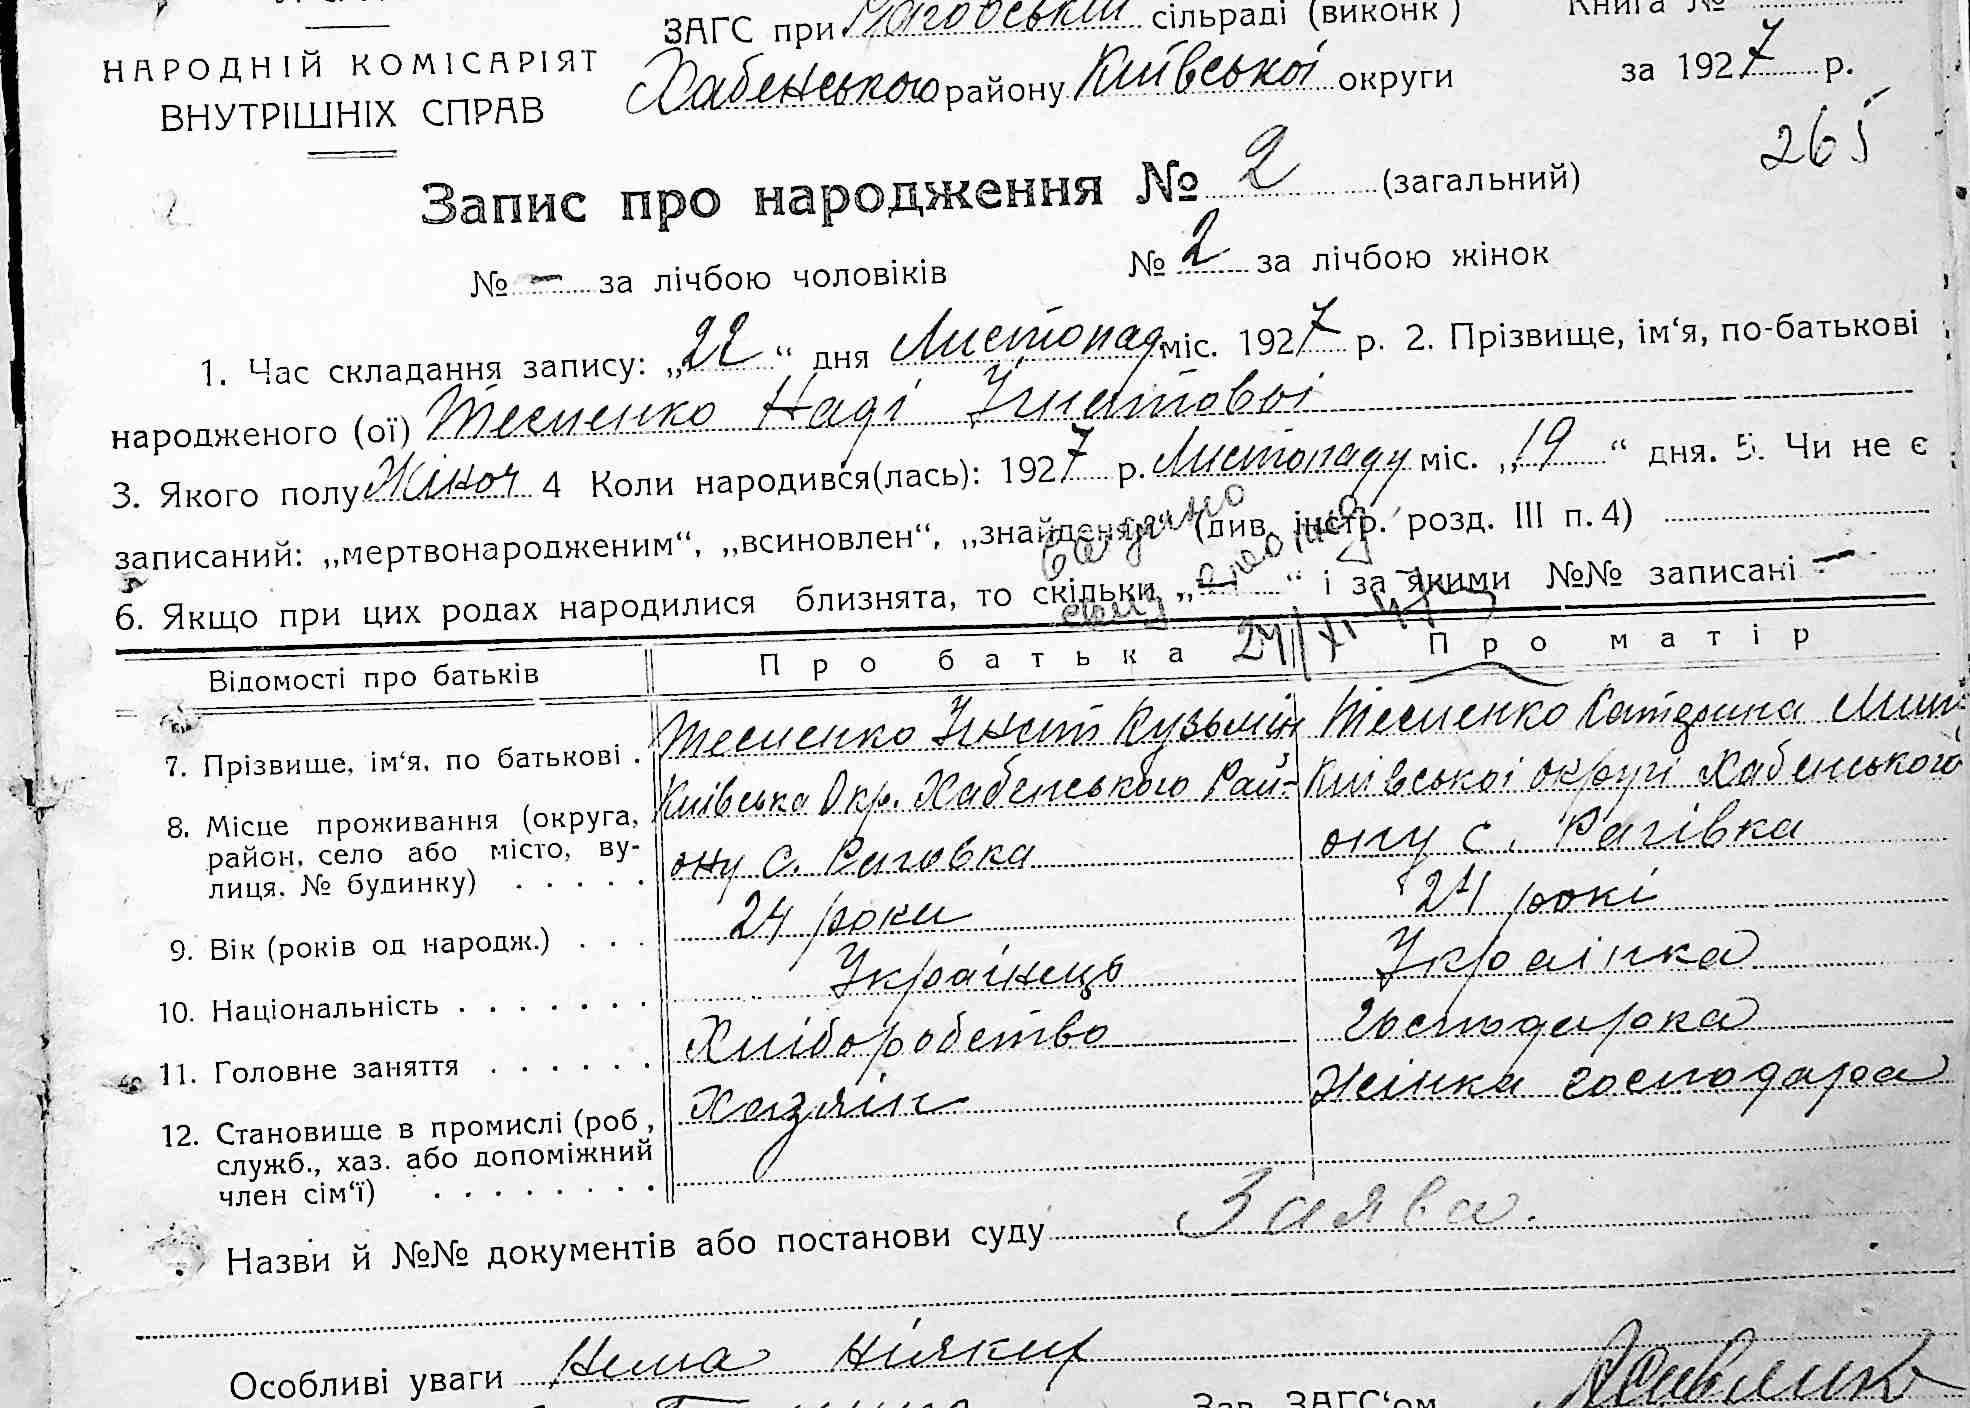 ЗАГС при Раговській сільраді (виконк) Книга №
НАРОДНІЙ КОМІСАРІЯТ
ВНУТРІШНІХ СПРАВ
Хабенського району Київської округи за 1927 р.
265
Запис про народження № 2 (загальний)
№ — за лічбою чоловіків № 2 за лічбою жінок
1. Час складання запису: „22“ дня Листопад міс. 1927 р. 2. Прізвище, ім‘я, по-батькові
народженого (ої) Тесленко Наді Ігнатовоі
3. Якого полу Жіноч 4 Коли народився(лась): 1927 р. Листопаду міс. „19“ дня. 5. Чи не є
записаний: „мертвонародженим“, „всиновлен“, „знайденям“ (див. інстр. розд. III п. 4)
6. Якщо при цих родах народилися близнята, то скільки „—“ і за якими №№ записані —
Відомості про батьків Про батька Про матір
7. Прізвище, ім‘я, по батькові . Тесленко Ігнат Кузьмін Тесленко Катерина
8. Місце проживання (округа, район, село або місто, ву-
лиця, № будинку) . . . . . Київська Окр. Хабенського Рай- Київськоі округі Хабенського
ону с. Раговка ону с. Рагівка
9. Вік (років од народж.) . . . 24 роки 24 рокі
10. Національність . . . . . . . Украінець Украінка
11. Головне заняття . . . . . . Хліборобство господарка
12. Становище в промислі (роб., Хазяін Жінка господара
служб., хаз. або допоміжний
член сім‘ї) . . . . . . . .
Назви й №№ документів або постанови суду Заява.
Особливі уваги Нема ніяких
Зав. ЗАГС‘ом